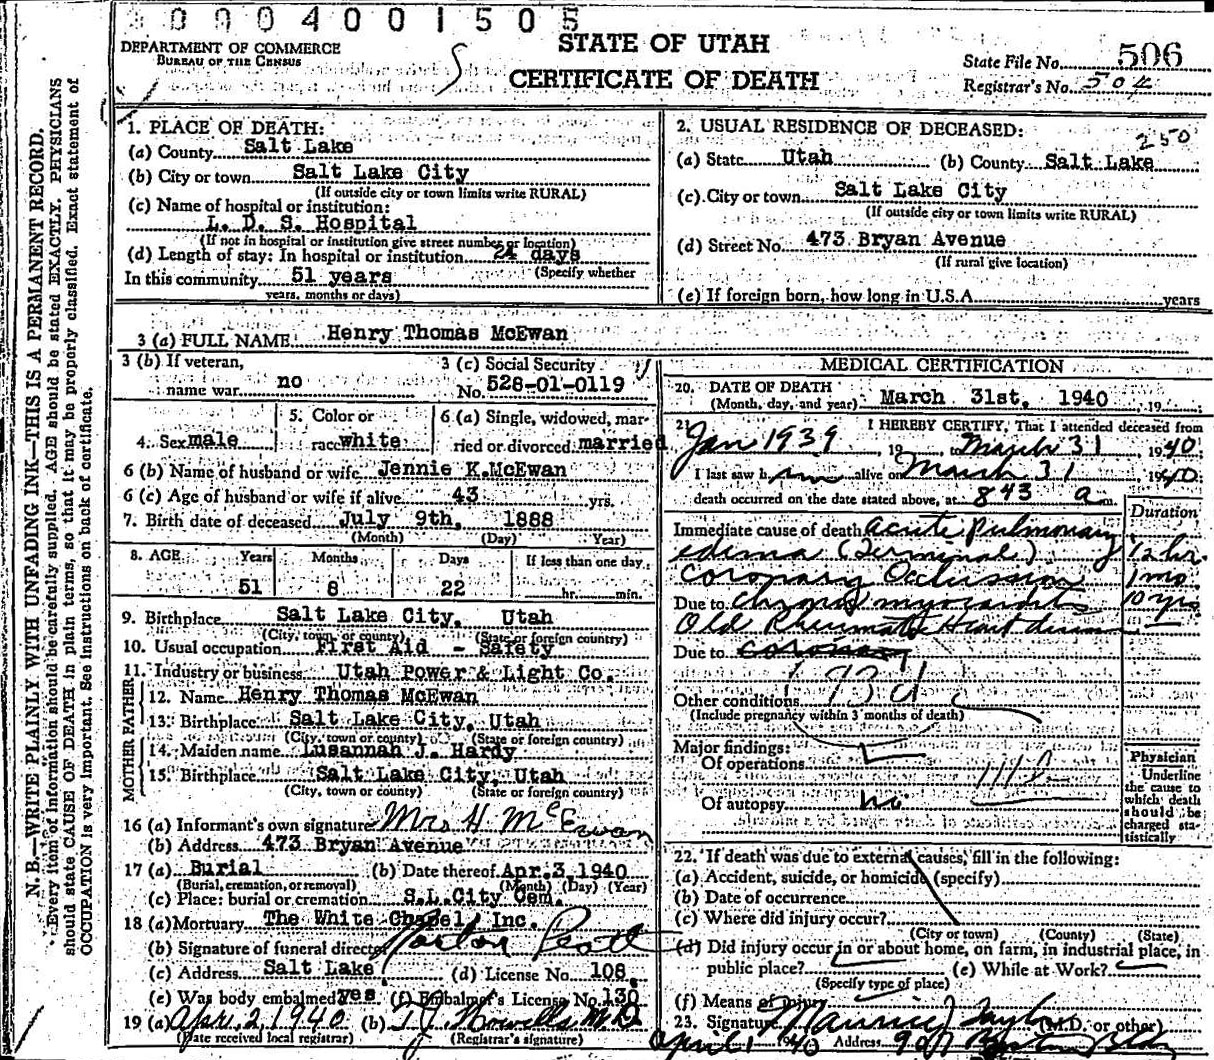 0004001505
DEPARTMENT OF COMMERCE
BUREAU OF THE CENSUS
STATE OF UTAH
CERTIFICATE OF DEATH
State File No. 506
Registrar's No. 504
N. B.—WRITE PLAINLY WITH UNFADING INK—THIS IS A PERMANENT RECORD.
Every item of information should be carefully supplied. AGE should be stated EXACTLY. PHYSICIANS
should state CAUSE OF DEATH in plain terms, so that it may be properly classified. Exact statement of
OCCUPATION is very important. See instructions on back of certificate.
1. PLACE OF DEATH:
(a) County Salt Lake
(b) City or town Salt Lake City
(If outside city or town limits write RURAL)
(c) Name of hospital or institution:
L. D. S. Hospital
(If not in hospital or institution give street number or location)
(d) Length of stay: In hospital or institution 24 days
(Specify whether
In this community 51 years
years, months or days)
2. USUAL RESIDENCE OF DECEASED:
250
(a) State Utah (b) County Salt Lake
(c) City or town Salt Lake City
(If outside city or town limits write RURAL)
(d) Street No. 473 Bryan Avenue
(If rural give location)
(e) If foreign born, how long in U.S.A. years
3 (a) FULL NAME Henry Thomas McEwan
3 (b) If veteran,
name war no
3 (c) Social Security
No. 528-01-0119
4. Sex male
5. Color or
race white
6 (a) Single, widowed, mar-
ried or divorced married
6 (b) Name of husband or wife Jennie K.McEwan
6 (c) Age of husband or wife if alive 43 yrs.
7. Birth date of deceased July 9th, 1888
(Month) (Day) Year)
8. AGE Years Months Days If less than one day
51 8 22 hr. min.
9. Birthplace Salt Lake City, Utah
(City, town, or county) (State or foreign country)
10. Usual occupation First Aid - Safety
11. Industry or business Utah Power & Light Co.
FATHER
12. Name Henry Thomas McEwan
13. Birthplace Salt Lake City, Utah
(City, town or county) (State or foreign country)
MOTHER
14. Maiden name Lusannah J. Hardy
15. Birthplace Salt Lake City, Utah
(City, town or county) (State or foreign country)
16 (a) Informant's own signature Mrs H McEwan
(b) Address 473 Bryan Avenue
17 (a) Burial (b) Date thereof Apr.3,1940
(Burial, cremation, or removal) (Month) (Day) (Year)
(c) Place: burial or cremation S.L.City Cem.
18 (a) Mortuary The White Chapel, Inc.
(b) Signature of funeral director
(c) Address Salt Lake (d) License No. 108
(e) Was body embalmed? yes (f) Embalmer's License No. 130
19 (a) Apr. 2, 1940 (b) T J Howells M.D.
(Date received local registrar) (Registrar's signature)
MEDICAL CERTIFICATION
20. DATE OF DEATH
(Month, day, and year) March 31st, 1940, 19
21. I HEREBY CERTIFY, That I attended deceased from
Jan 1939, 19 to March 31, 1940.
I last saw him alive on March 31, 1940
death occurred on the date stated above, at 8 43 a m.
Duration
Immediate cause of death acute Pulmonary
edema (Terminal) 12 hr.
Coronary Occlusion 1 mo.
Due to chronic myocarditis 10 yr.
Old Rheumatic Heart disease
Due to coronary
Other conditions
(Include pregnancy within 3 months of death)
Major findings:
Of operations
Of autopsy no
Physician
Underline
the cause to
which death
should be
charged sta-
tistically
22. If death was due to external causes, fill in the following:
(a) Accident, suicide, or homicide (specify)
(b) Date of occurrence
(c) Where did injury occur?
(City or town) (County) (State)
(d) Did injury occur in or about home, on farm, in industrial place, in
public place? (e) While at Work?
(Specify type of place)
(f) Means of injury
23. Signature Maurice J Taylor (M.D. or other)
April 1 1940 Address 907 Boston Bldg